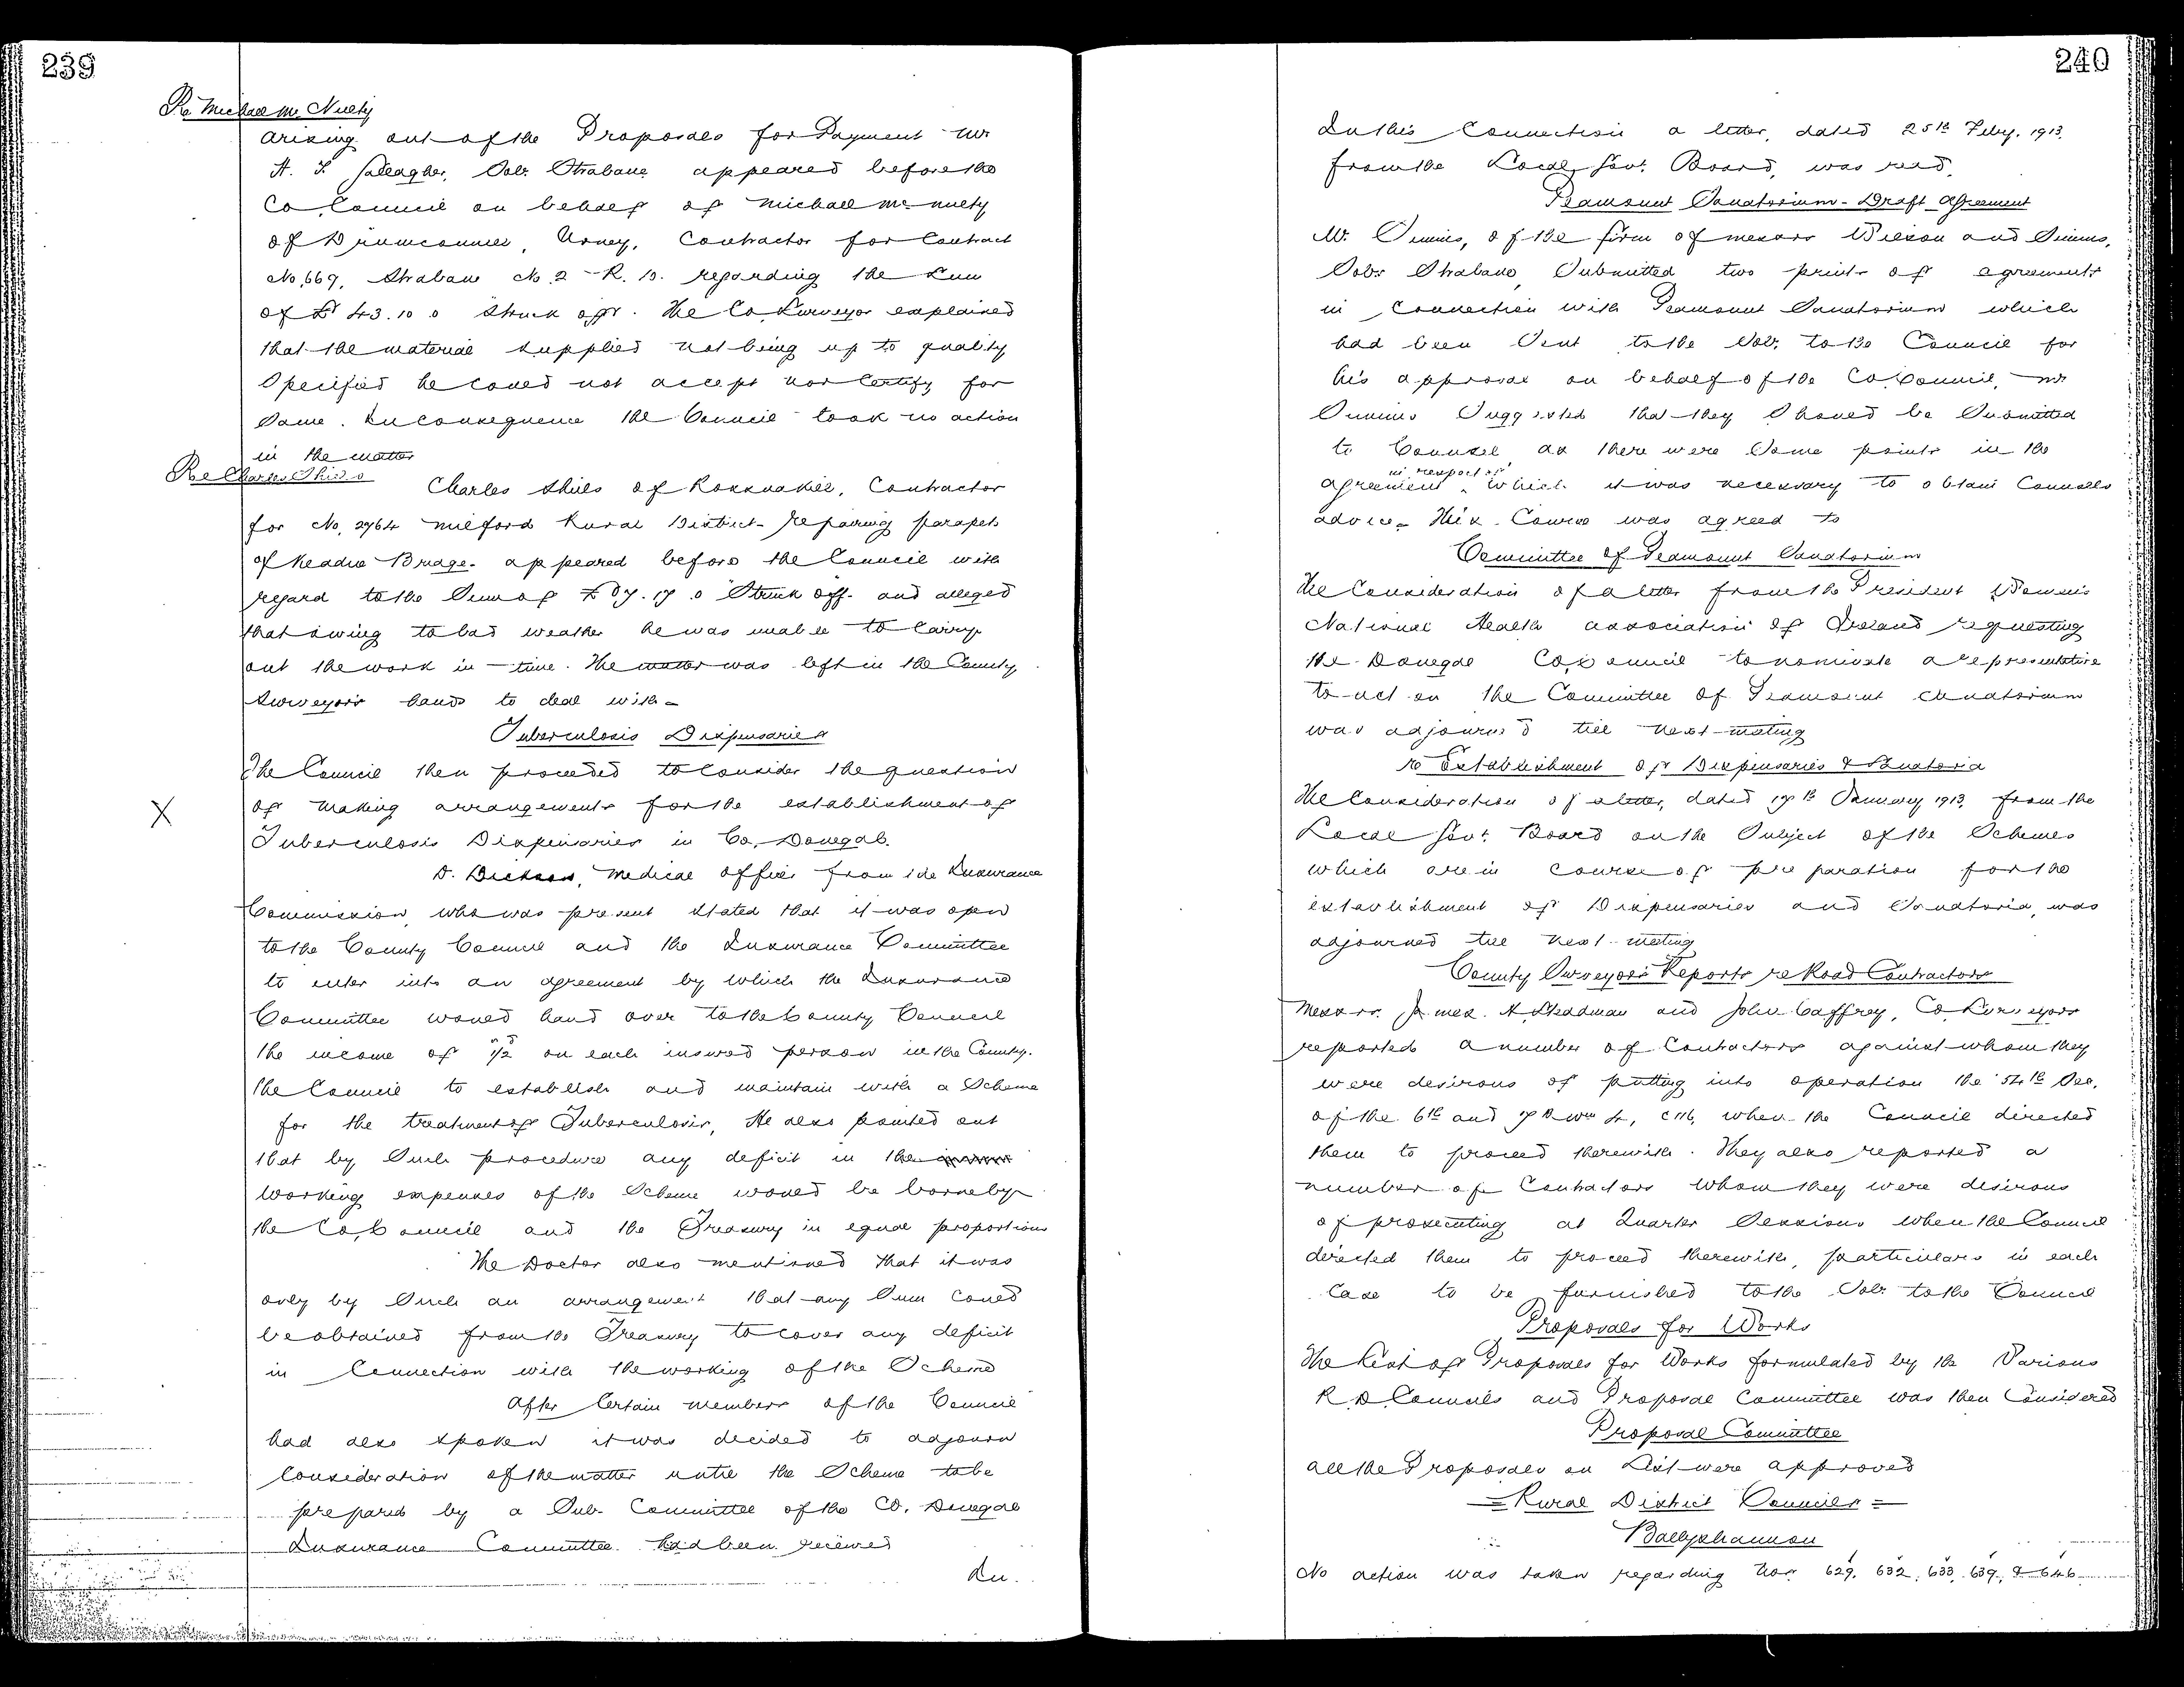 239
Re Michael Mc Nulty
arising out of the Proposals for Payment Mr
A. T. Gallagher, Solr. Strabane appeared before the
Co. Council on behalf of Michael Mc Nulty
of Urney, Contractor for Contract
No. 669, Strabane No. 2 R. D. regarding the Sum
of £ 43. 10. 0 Struck off. The Co. Surveyor explained
that the material supplied not being up to quality
Specified he could not accept nor Certify for
Same. In consequence the Council took no action
in the matter
Re Charles Shiels
Charles Shiels of Rossnakill, Contractor
for No. 2964 Milford Rural District - repairing parapets
of Keadue Bridge. appeared before the Council with
regard to the Sum of Struck off. and alleged
that owing to bad weather he was unable to Carry
out the work in time. The matter was left in the County
Surveyors hands to deal with -
Tuberculosis Dispensaries
The Council then proceeded to Consider the question
X of Making arrangements for the establishment of
Tuberculosis Dispensaries in Co. Donegal.
D. Dickson, Medical Officer from the Insurance
Commission, who was present stated that it was open
to the County Council and the Insurance Committee
to enter into an agreement by which the Insurance
Committee would hand over to the County Council
the income of on each insured person in the County.
The Council to establish and maintain with a Scheme
for the treatment of Tuberculosis, He also pointed out
that by Such procedure any deficit in the
Working expenses of the Scheme would be borne by
the Co. Council and the Treasury in equal proportions
The Doctor also mentioned that it was
only by Such an arrangement that any Sum Could
be obtained from the Treasury to cover any deficit
in Connection with the working of the Scheme
After Certain members of the Council
had also spoken it was decided to adjourn
Consideration of the matter until the Scheme to be
prepared by a Sub. Committee of the Co. Donegal
Insurance Committee had been received
In.
240
In this Connection a letter, dated 25th Feby. 1913,
from the Local Govt. Board, was read.
Peamount Sanatorium - Draft Agreement
Mr. Simms, of the firm of Messrs Wilson and Simms,
Solrs Strabane, Submitted two prints of agreements
in Connection with Peamount Sanatorium which
had been Sent to the Solr. to the Council for
his approval on behalf of the Co. Council, Mr
Simms Suggested that they Should be Submitted
to Counsel, as there were Some points in the
agreement in respect of which it was necessary to obtain Counsels
advice. This Course was agreed to
Committee of Peamount Sanatorium
The Consideration of a letter from the President Womens
National Health association of Ireland requesting
the Donegal Co. Council to nominate a representative
to act on the Committee of Peamount Sanatorium
was adjourned till next meeting
re Establishment of Dispensaries & Sanatoria
The Consideration of a letter, dated 17th January 1913, from the
Local Govt. Board on the Subject of the Schemes
which are in course of preparation for the
establishment of Dispensaries and Sanatoria, was
adjourned till next meeting
County Surveyors Reports re Road Contractors
Messrs. James. A. Steadman and John Caffrey, Co. Surveyors
reported a number of Contractors against whom they
were desirous of putting into operation the 54th Sec.
of the 6th and 7th Wm 4, C 116, when the Council directed
them to proceed therewith. They also reported a
number of Contractors whom they were desirous
of prosecuting at Quarter Sessions when the Council
directed them to proceed therewith, particulars in each
Case to be furnished to the Solr. to the Council
Proposals for Works
The List of Proposals for Works formulated by the Various
R. D. Councils and Proposal Committee was then Considered
Proposal Committee
All the Proposals on List were approved
= Rural District Councils =
Ballyshannon
No action was taken regarding Nos. 629, 632, 633, 639, & 646